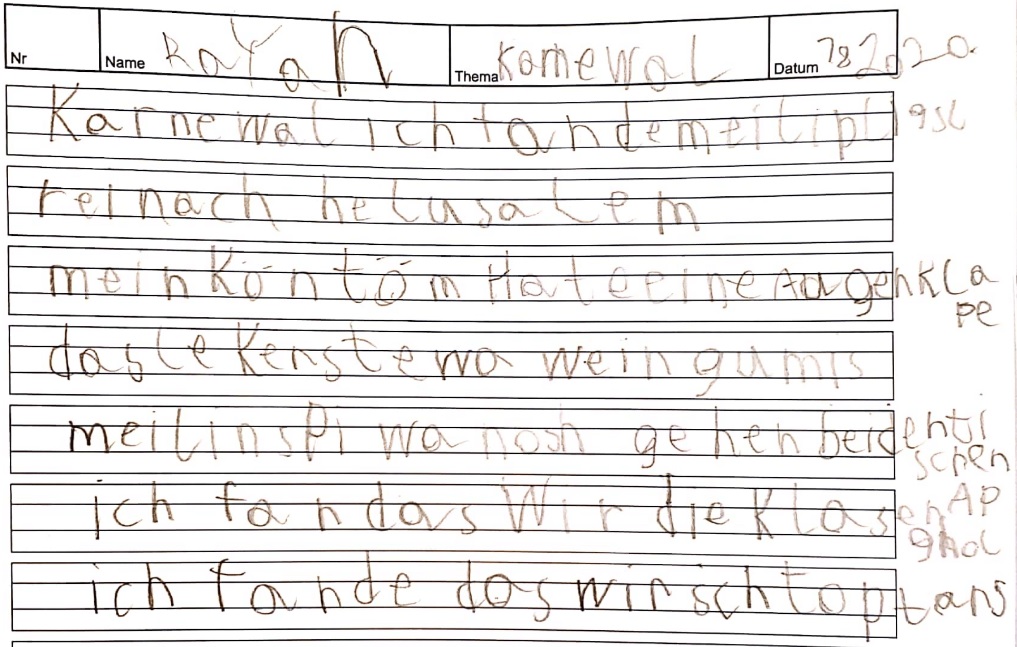 Nr Name RaYan Thema Karnewal Datum 782020.
Karnewal ich fandemeilipl1gsl
reinach helusalem
mein Köntöm Hateeine AdgenKla
pe
dasleKenstewa weingumis
meilinsPl wa nosh gehen beidenti
schen
ich fandas Wir die KlasenAP
ghol
ich fande das wir schtoptans